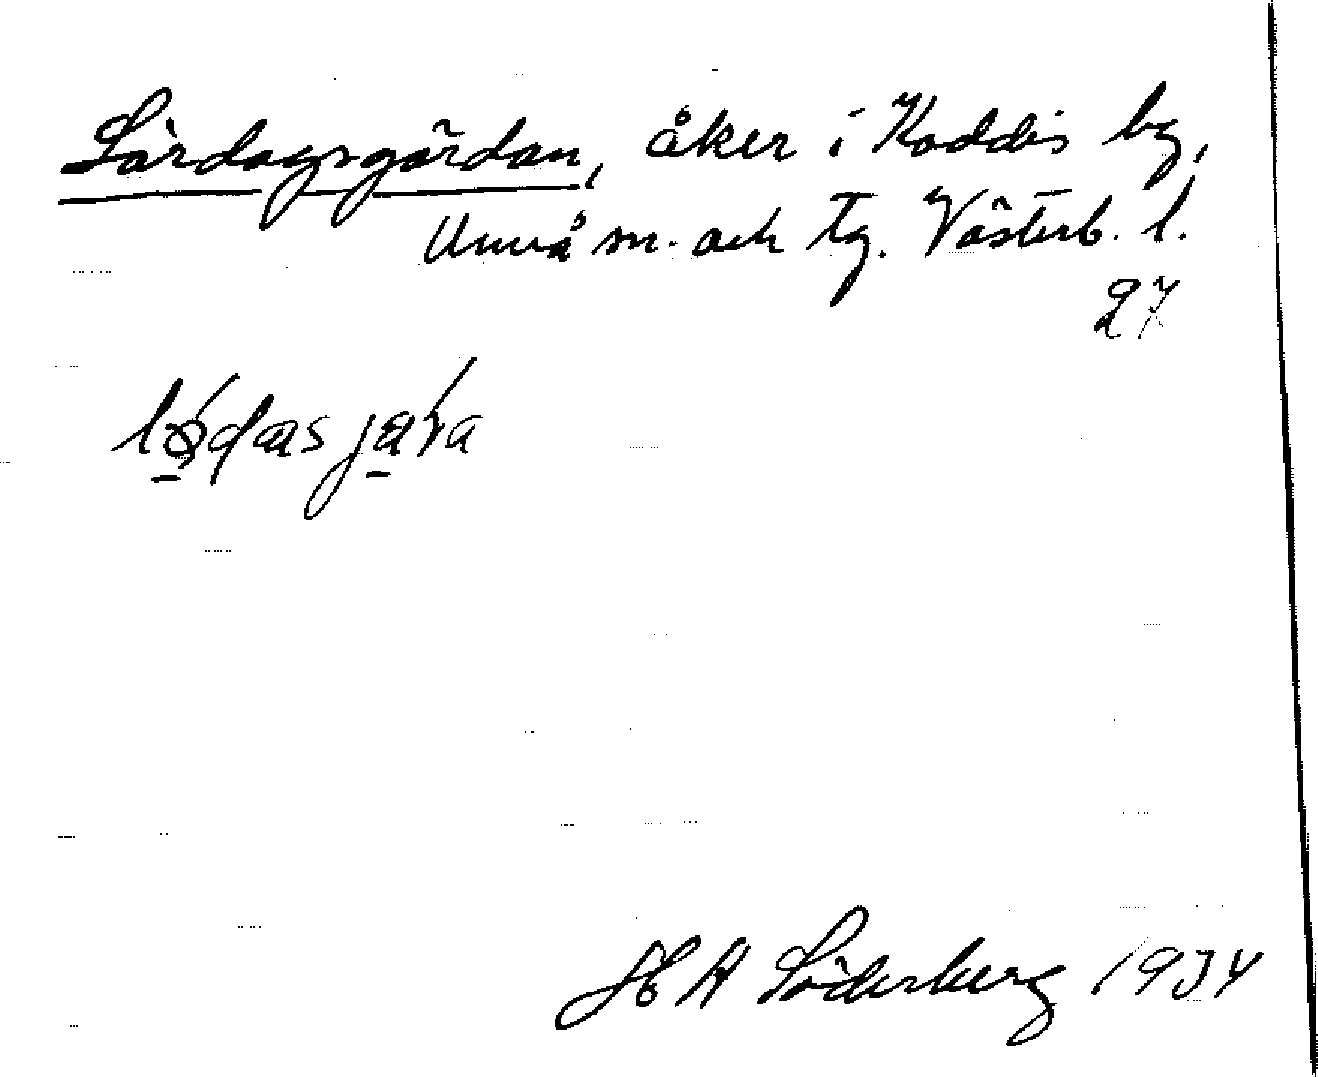 Lördagsgärdan, åker i Koddis by,
Umeå sn. och tg. Västerb. l.
27
HA Söderberg 1934